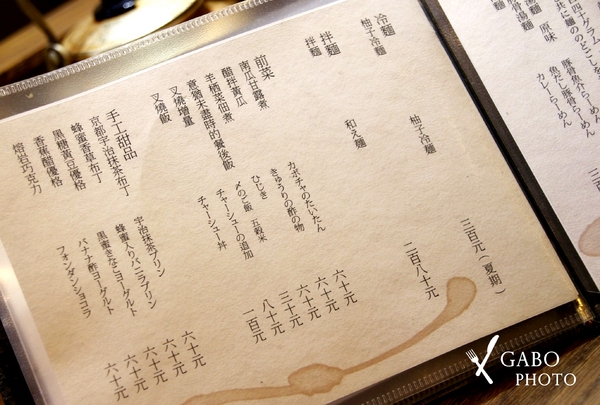 冷麵
柚子冷麵 柚子冷麵 三百元(夏期)
拌麵
拌麵 和え麵 二百八十元
前菜
南瓜甘露煮 カボチャのたいたん 六十元
醋拌黃瓜 きゅうりの酢の物 六十元
羊栖菜佃煮 ひじき 六十元
意猶未盡時的餐後飯 〆のご飯 五穀米 三十元
叉燒增量 チャーシューの追加 八十元
叉燒飯 チャーシュー丼 一百元
手工甜品
京都宇治抹茶布丁 宇治抹茶プリン 六十元
蜂蜜香草布丁 蜂蜜入りバニラプリン 六十元
黑糖黃豆優格 黒蜜きなこヨーグルト 六十元
香蕉醋優格 バナナ酢ヨーグルト 六十元
熔岩巧克力 フォンダンショコラ 六十元
原味 豚骨魚介らーめん
魚だし豚骨らーめん
カレーらーめん
GABO
PHOTO